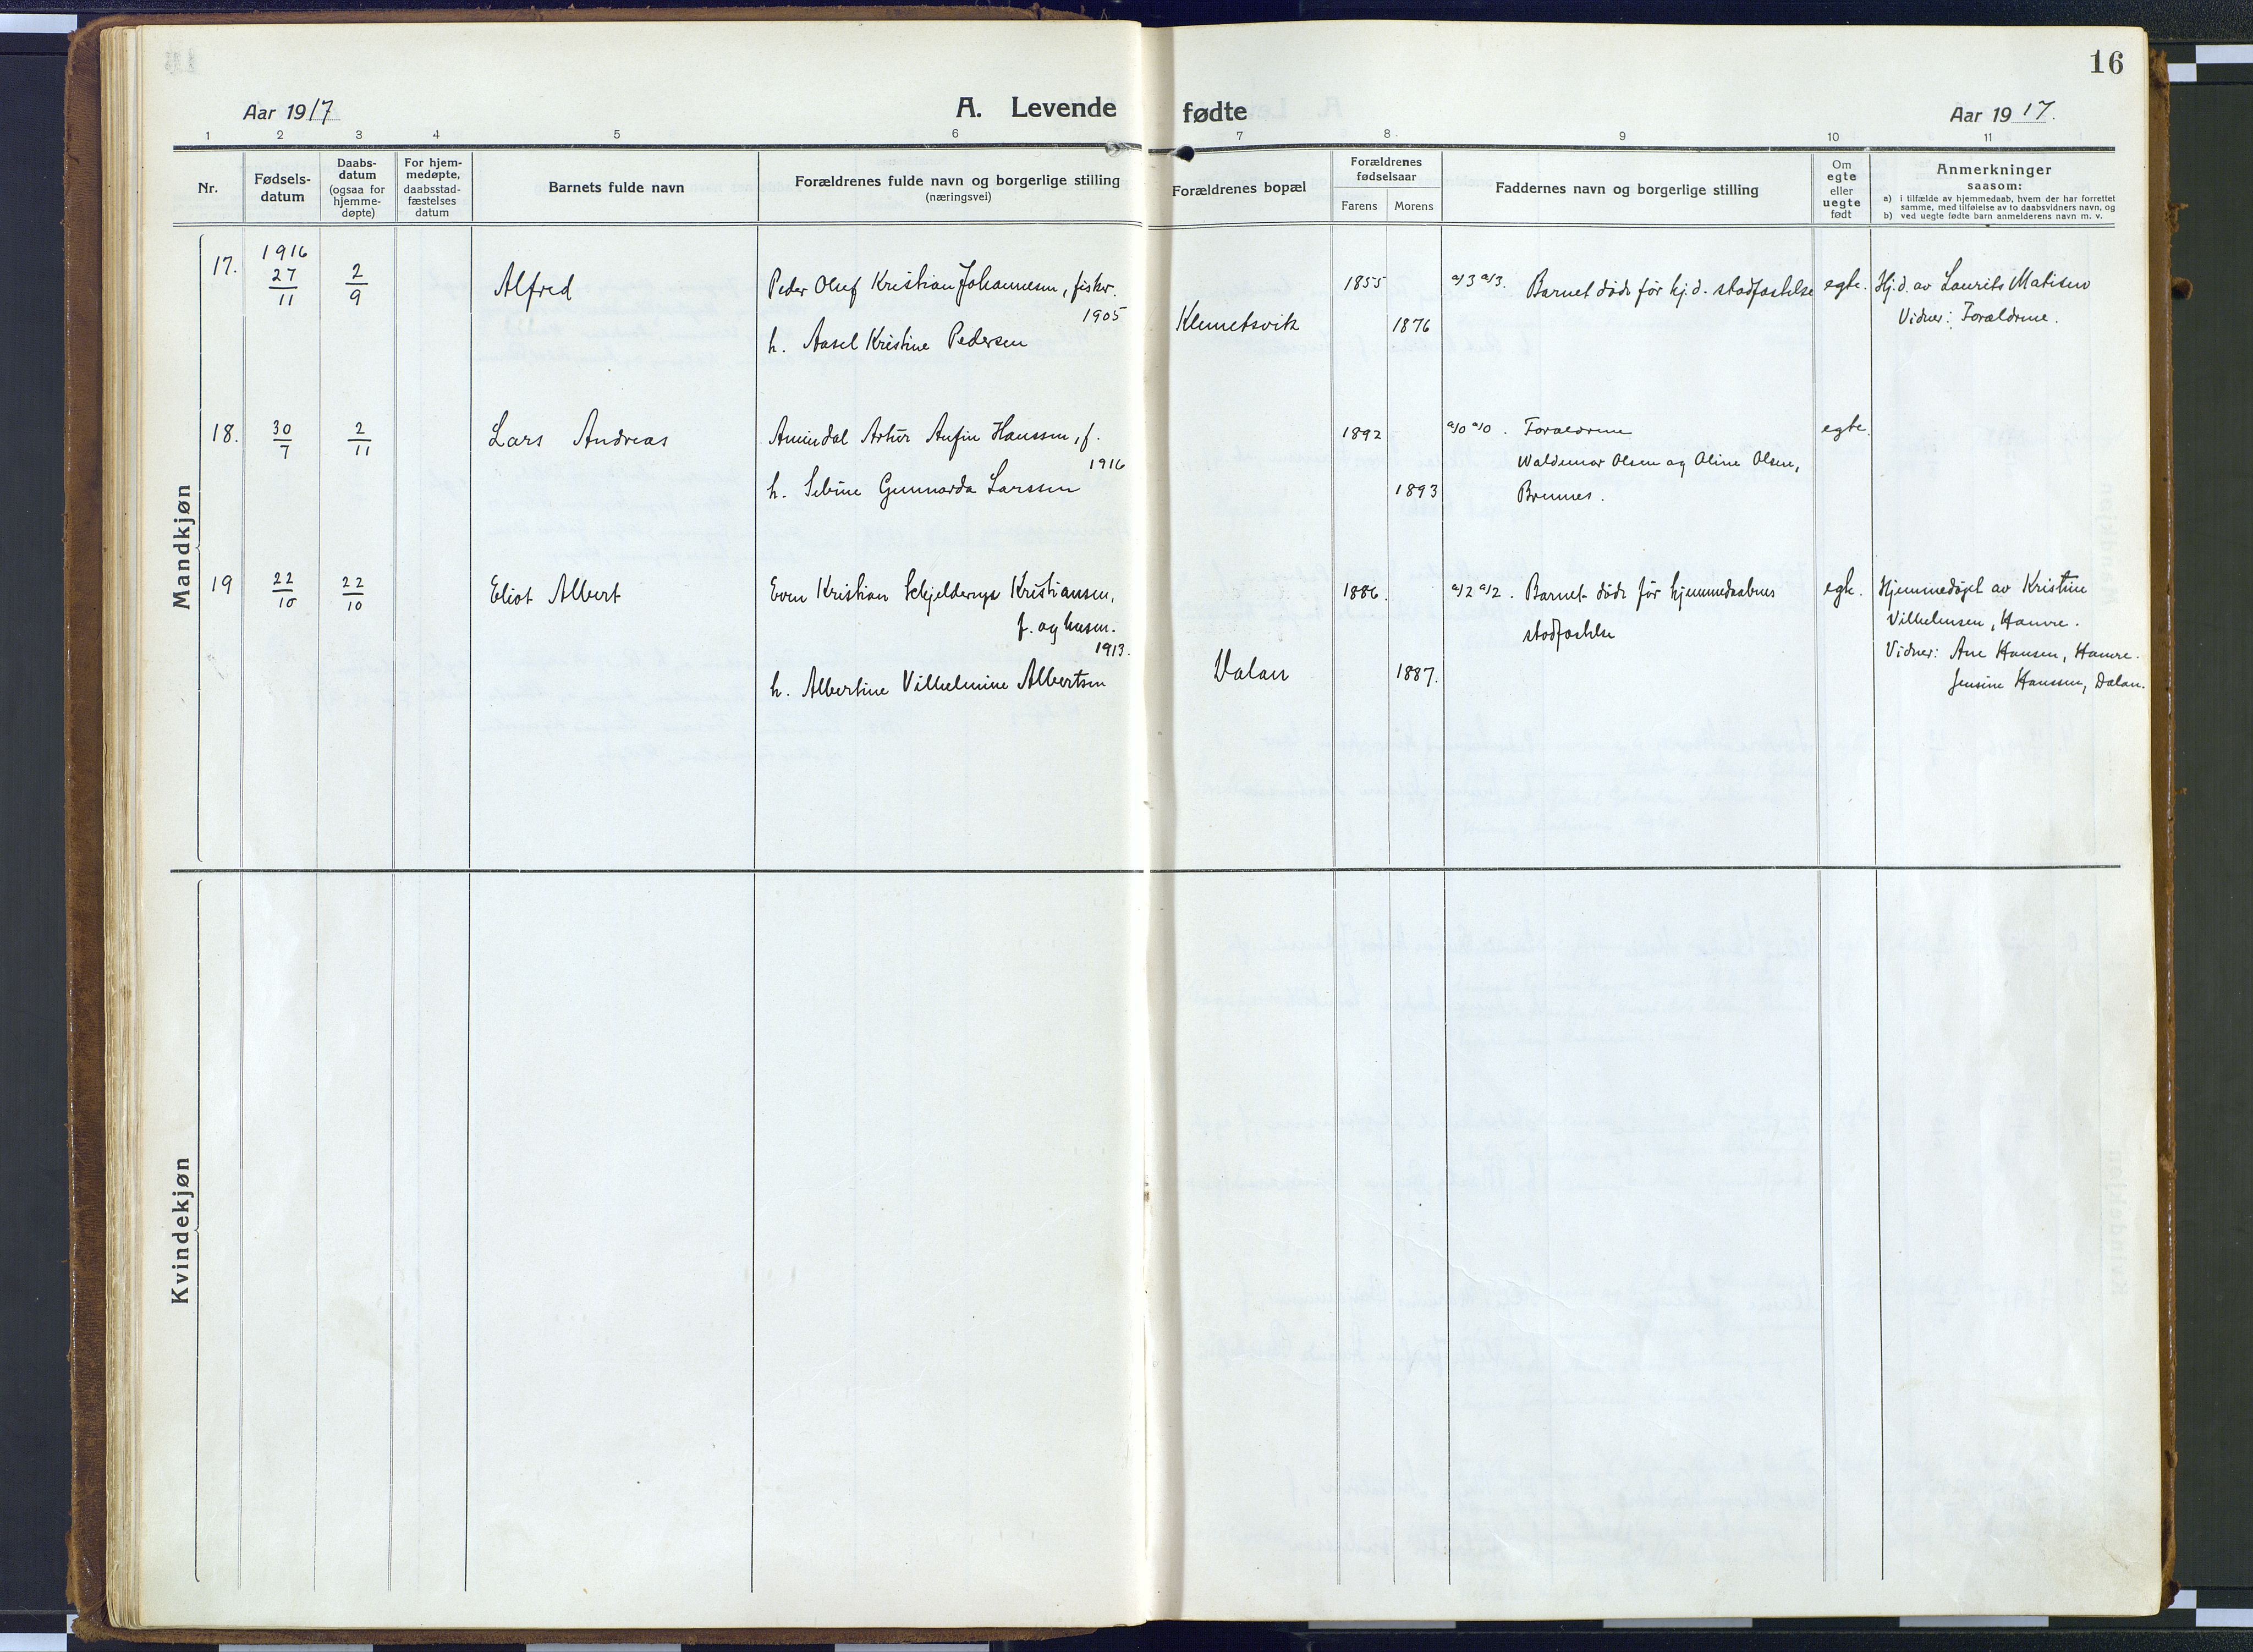 16
Aar 1917
A. Levende fødte
Aar 1917.
1 2 3 4 5 6 7 8 9 10 11
Nr.
Fødselsdatum
Daabsdatum (ogsaa for hjemmedøpte)
For hjemmedøpte, daabsstadfæstelses datum
Barnets fulde navn
Forældrenes fulde navn og borgerlige stilling
(næringsvei)
Forældrenes bopæl
Forældrenes fødselsaar
Farens Morens
Faddernes navn og borgerlige stilling
Om egte eller uegte født
Anmerkninger
saasom:
a) i tilfælde av hjemmedaab, hvem der har forrettet
samme, med tilføielse av to daabsvidners navn, og
b) ved uegte fødte barn anmelderens navn m. v.
Mandkjøn
17. 1916 27/11 2/9 Alfred
Peder Oluf Kristian Johannesen, fisker.
1905
h. Aasel Kristine Pedersen
Klemetsvik
1855
1876
a/3 a/3. Barnet døde før hj.d. stadfæstelse
egte.
Hj.d. av Laurits Matisen
Vidner: Forældrene.
18. 30/7 2/11 Lars Andreas
Artur Hanssen, f.
1916
h. Gunnarda Larssen
1892
1893
a/0 a/0. Forældrene
Waldemar Olsen og Oline Olsen,
Brennes.
egte.
19 22/10 22/10 Eliot Albert
Even Kristian Schjelderup Kristiansen,
f. og husm.
1913.
h. Albertine Vilhelmine Albertsen
Dalan
1886.
1887.
a/2 a/2. Barnet døde før hjemmedaabens
stadfæstelse
egte.
Hjemmedøpt av Kristine
Vilhelmsen, Hamre.
Vidner: Ane Hansen, Hamre.
Jensine Hanssen, Dalan.
Kvindekjøn